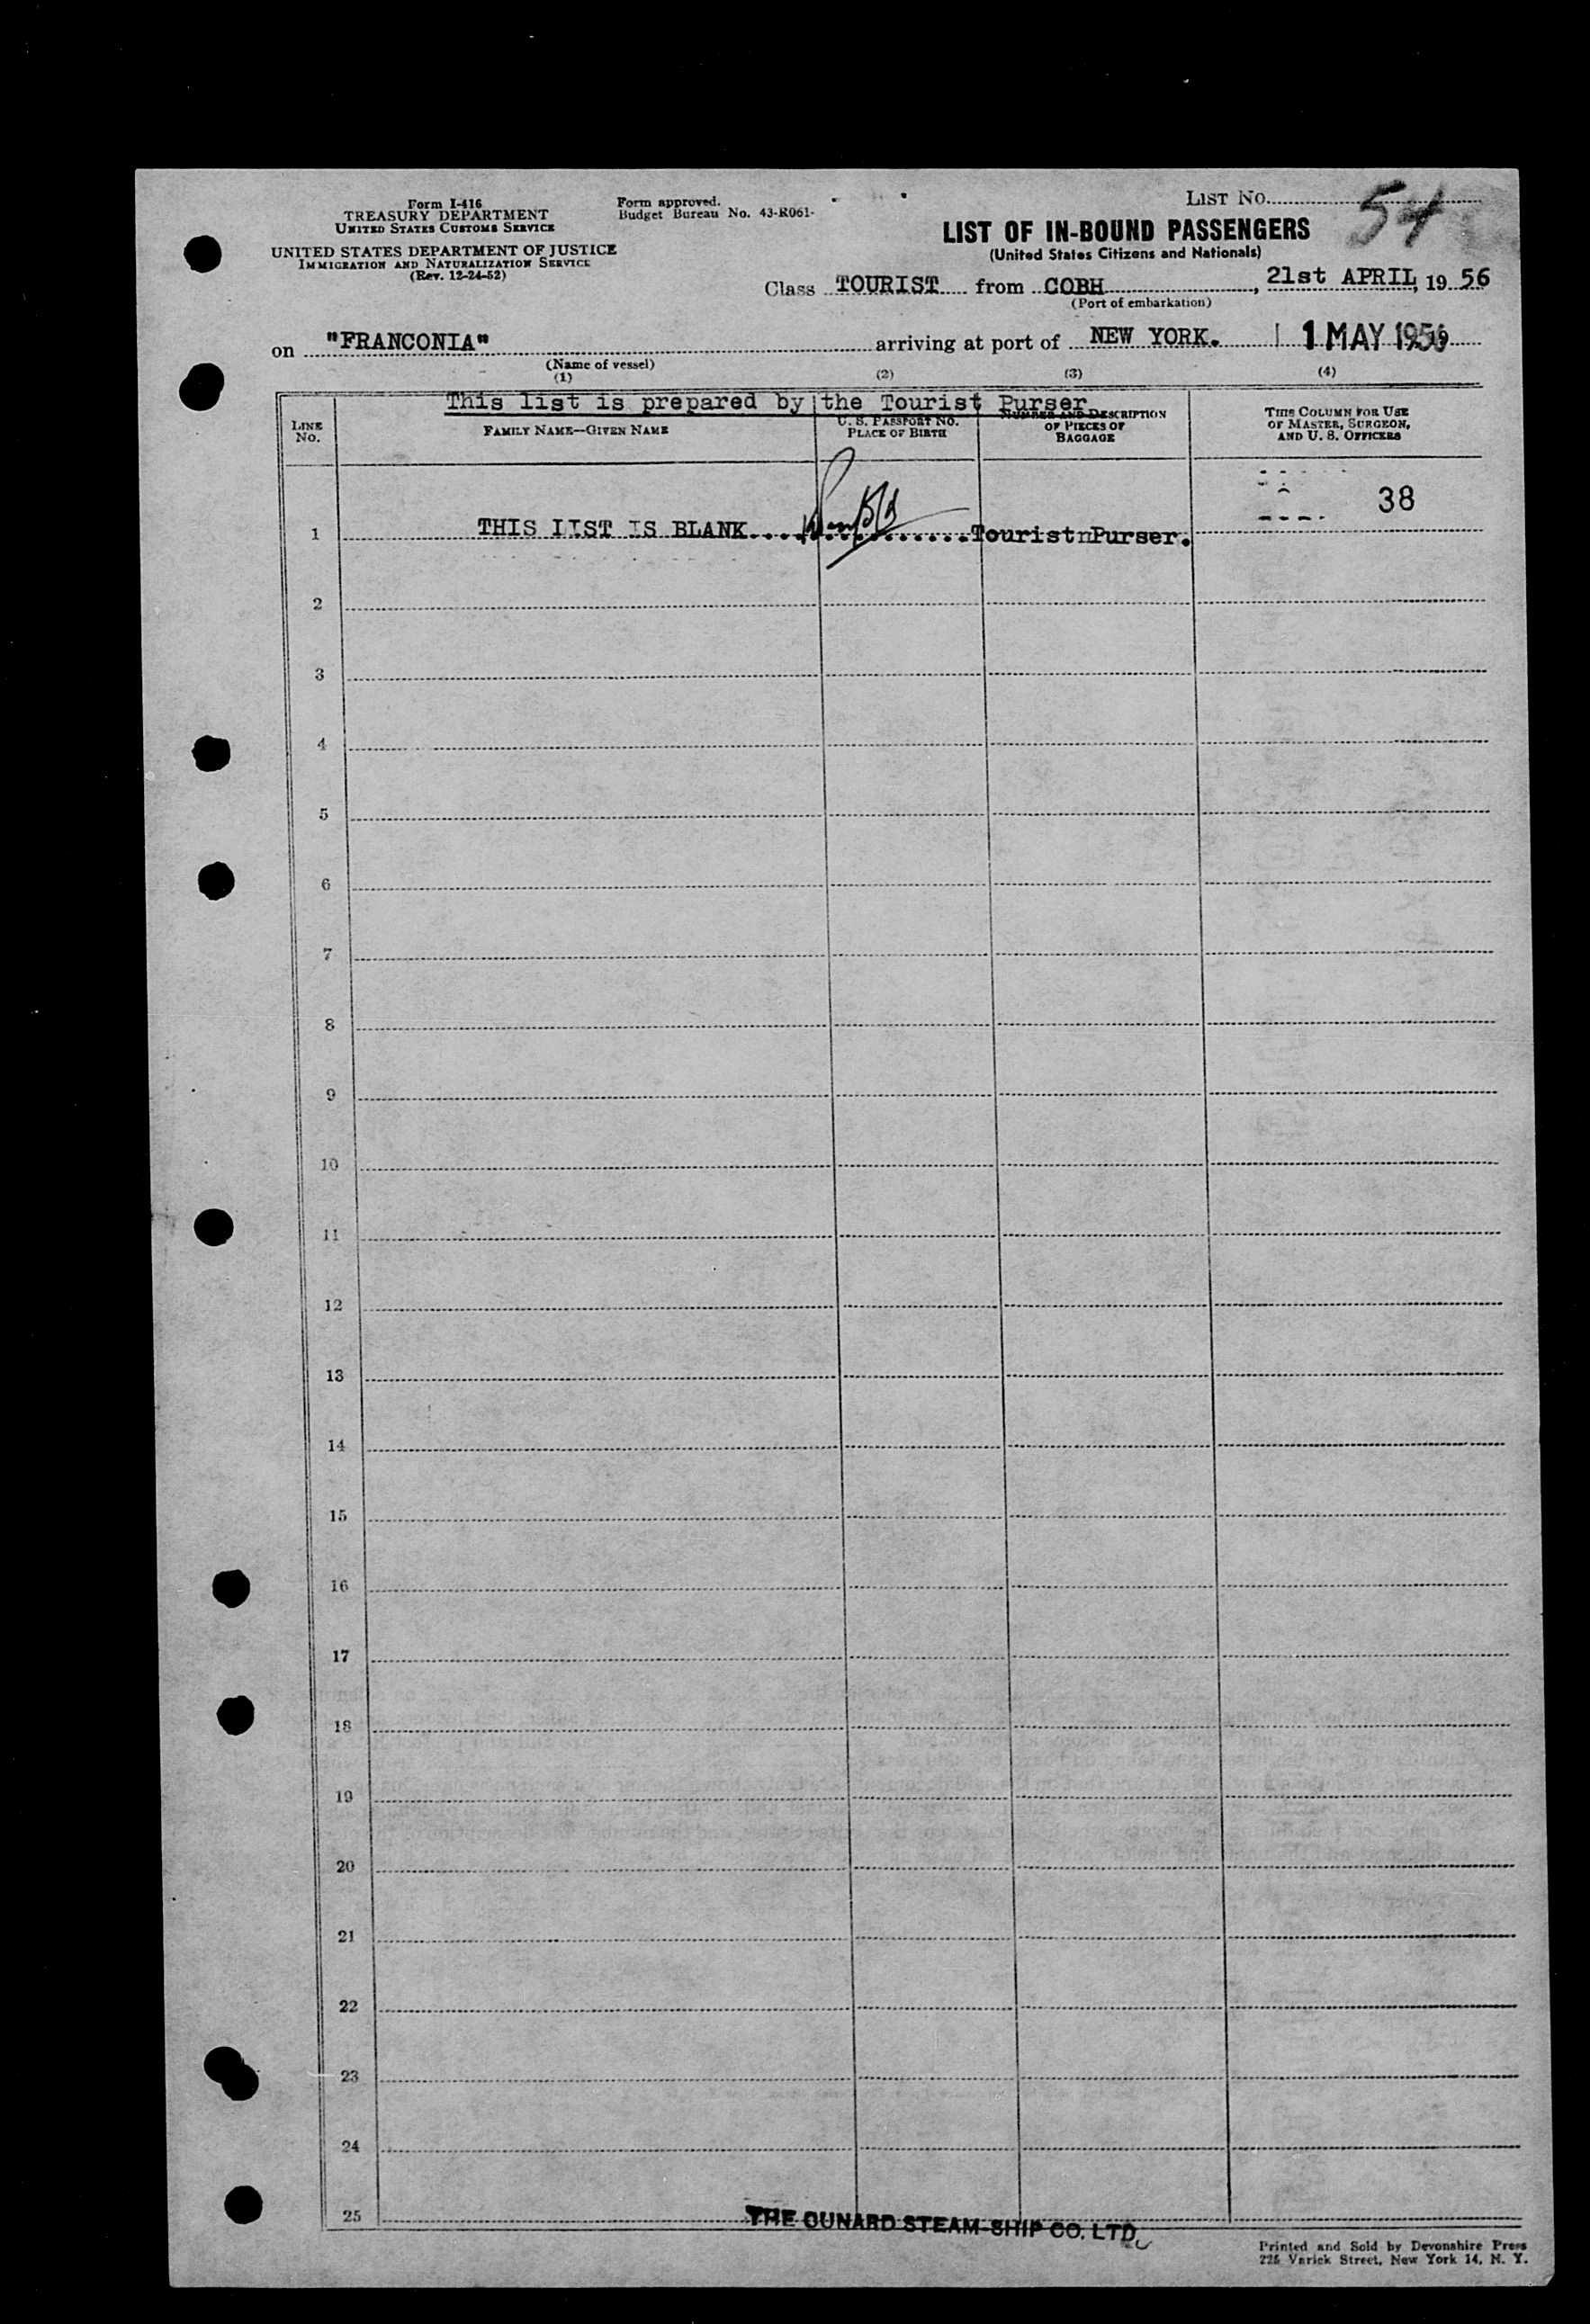 Form I-416
TREASURY DEPARTMENT
UNITED STATES CUSTOMS SERVICE
UNITED STATES DEPARTMENT OF JUSTICE
IMMIGRATION AND NATURALIZATION SERVICE
(Rev. 12-24-52)
Form approved.
Budget Bureau No. 43-R061-
LIST NO. 54
LIST OF IN-BOUND PASSENGERS
(United States Citizens and Nationals)
Class TOURIST from COBH, 21st APRIL, 19 56
(Port of embarkation)
on "FRANCONIA" arriving at port of NEW YORK. 1 MAY 1956
(Name of vessel)
(1) (2) (3) (4)
This list is prepared by the Tourist Purser
LINE NO.
FAMILY NAME—GIVEN NAME
U. S. PASSPORT NO.
PLACE OF BIRTH
NUMBER AND DESCRIPTION
OF PIECES OF
BAGGAGE
THIS COLUMN FOR USE
OF MASTER, SURGEON,
AND U. S. OFFICERS
38
1 THIS LIST IS BLANK.................TouristnPurser.
2
3
4
5
6
7
8
9
10
11
12
13
14
15
16
17
18
19
20
21
22
23
24
25
THE CUNARD STEAM-SHIP CO. LTD.
Printed and Sold by Devonshire Press
225 Varick Street, New York 14, N. Y.